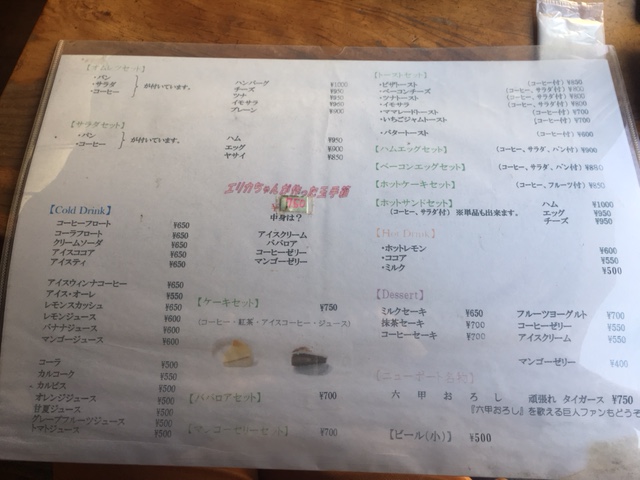 【オムレツセット】
・パン
・サラダ
・コーヒー
が付いています。
ハンバーグ ¥1000
チーズ ¥950
ツナ ¥950
イモサラ ¥950
プレーン ¥900
【サラダセット】
・パン
・コーヒー
が付いています。
ハム ¥950
エッグ ¥900
ヤサイ ¥850
中身は？
アイスクリーム
ババロア
コーヒーゼリー
マンゴーゼリー
【Cold Drink】
コーヒーフロート ¥650
コーラフロート ¥650
クリームソーダ ¥650
アイスココア ¥650
アイスティ ¥650
アイスウィンナコーヒー ¥650
アイス・オーレ ¥550
レモンスカッシュ ¥650
レモンジュース ¥600
バナナジュース ¥600
マンゴージュース ¥600
コーラ ¥500
カルコーク ¥550
カルピス ¥500
オレンジジュース ¥500
甘夏ジュース ¥500
グレープフルーツジュース ¥500
トマトジュース ¥500
【ケーキセット】 ¥750
(コーヒー・紅茶・アイスコーヒー・ジュース)
【ババロアセット】 ¥700
【マンゴーゼリーセット】 ¥700
【トーストセット】
・ピザトースト (コーヒー付) ¥850
・ベーコンチーズ (コーヒー、サラダ付) ¥800
・ツナトースト (コーヒー、サラダ付) ¥800
・イモサラ (コーヒー、サラダ付) ¥800
・ママレードトースト (コーヒー付) ¥700
・いちごジャムトースト (コーヒー付) ¥700
・バタートースト (コーヒー付) ¥600
【ハムエッグセット】 (コーヒー、サラダ、パン付) ¥900
【ベーコンエッグセット】 (コーヒー、サラダ、パン付) ¥880
【ホットケーキセット】 (コーヒー、フルーツ付) ¥850
【ホットサンドセット】 ハム ¥1000
(コーヒー、サラダ付) ※単品も出来ます。 エッグ ¥950
チーズ ¥950
【Hot Drink】
・ホットレモン ¥600
・ココア ¥550
・ミルク ¥500
【Dessert】
ミルクセーキ ¥650
抹茶セーキ ¥700
コーヒーセーキ ¥700
フルーツヨーグルト ¥700
コーヒーゼリー ¥550
アイスクリーム ¥550
マンゴーゼリー ¥400
六甲おろし 頑張れ タイガース ¥750
『六甲おろし』を歌える巨人ファンもどうぞ
【ビール(小)】 ¥500